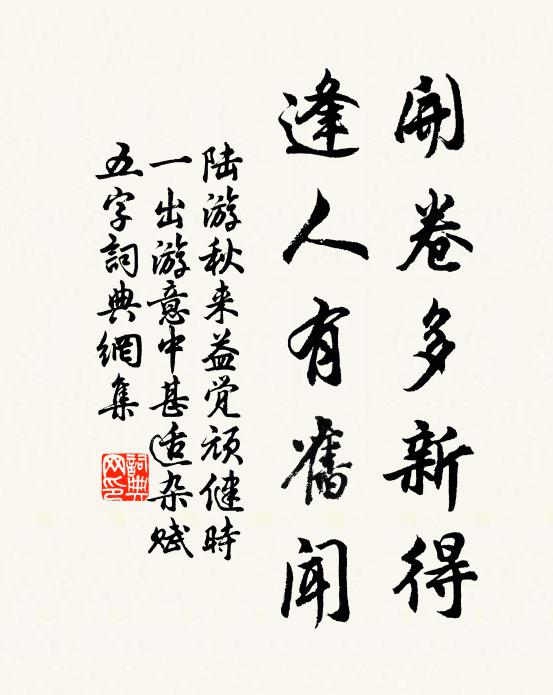 開卷多新得
逢人有舊聞
陆游秋来益觉顽健時
一出游意中甚适杂赋
五字詞典網集
詞典网印